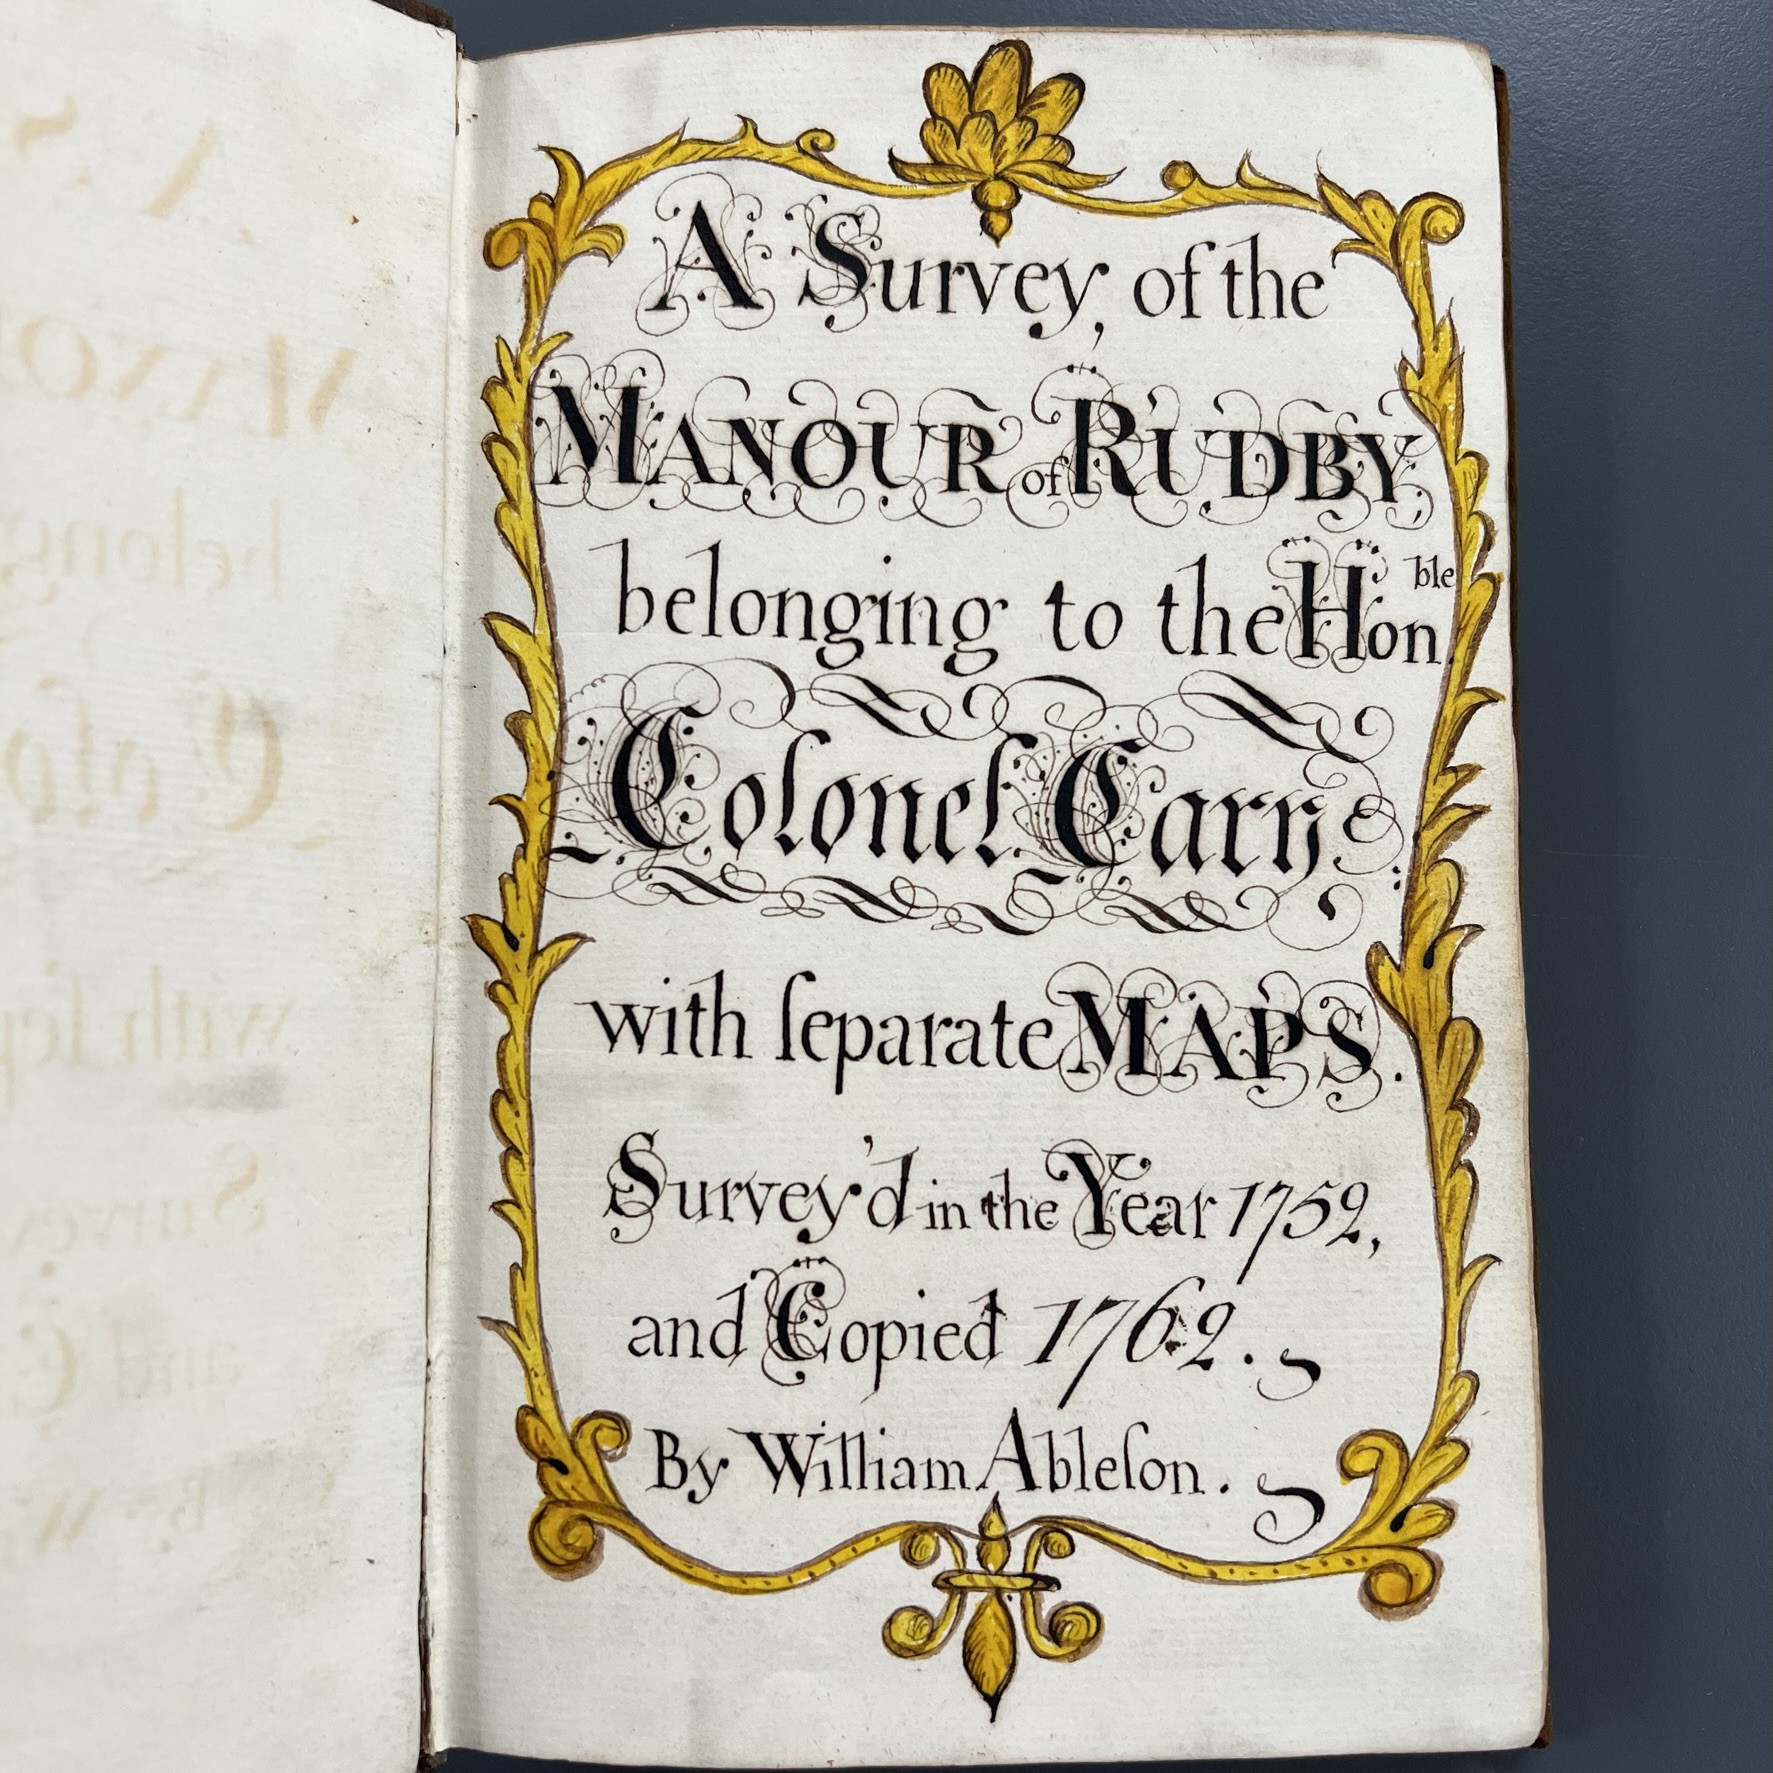 A Survey, of the
MANOUR of RUDBY,
belonging to the Hon.ble
Colonel Cary:
with ſeparate MAPS.
Survey'd in the Year 1752,
and Copied 1762.
By William Ableſon.